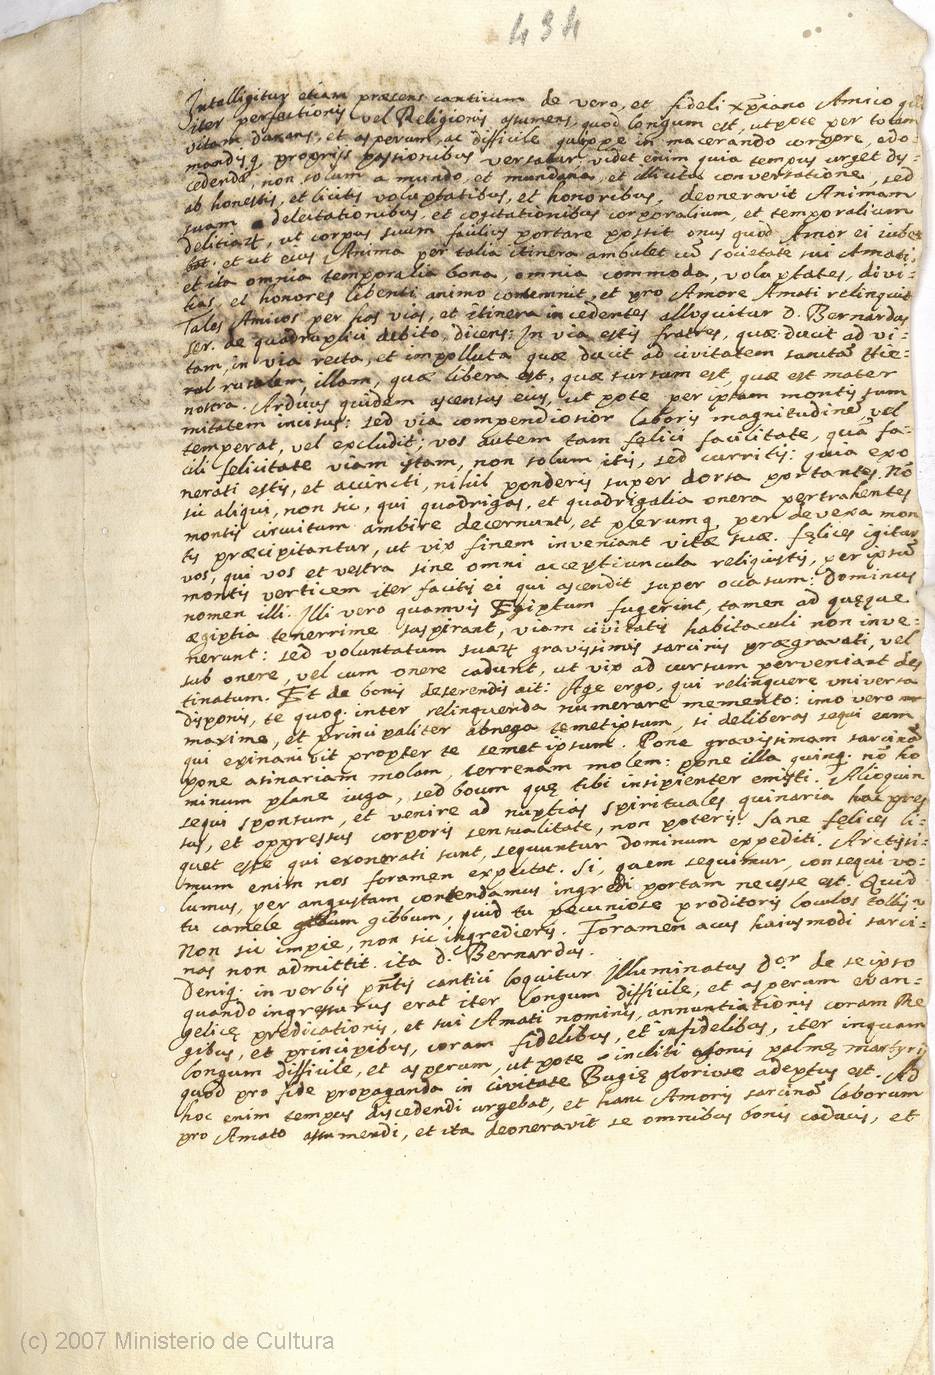 434
Intelligitur etiam præsens canticum de vero, et fideli xp̃iano Amico qui
iter perfectionis vel Religionis assumens, quod longum est, utpote per totam
vitam durans, et asperum, ac difficile quippe in macerando corpore, edo-
mandisq. proprijs passionibus versatur, videt enim quia tempus urget dis-
cedendi, non solum a mundo, et mundana, et illicita conversatione, sed
ab honestis, et licitis voluptatibus, et honoribus, deoneravit Animam
suam delectationibus, et cogitationibus corporalium, et temporalium
delitiarum, ut corpus suum facilius portare possit onus quod Amor ei iubet
et ut eius Anima per talia itinera ambulet cũ societate sui Amati,
et ita omnia temporalia bona, omnia commoda, voluptates, divi-
tias, et honores libenti animo contemnit, et pro Amore Amati relinquit
Tales Amicos per has vias, et itinera incedentes alloquitur D. Bernardus
ser. de quadruplici debito, dicens: In via estis fratres, quæ ducit ad vi-
tam, in via recta, et impolluta quæ ducit ad civitatem sanctã Hie-
rusalem, illam, quæ libera est, quæ sursum est quæ est mater
nostra. Arduus quidem ascensus eius, ut pote per ipsam montis sum
mitatem incisus: sed via compendiosior laboris magnitudinẽ vel
temperat, vel excludit: vos autem tam felici facilitate, quã fa-
cili felicitate viam istam, non solum itis, sed curritis: quia exo
nerati estis, et accincti, nihil ponderis super dorsa portantes. Nõ
sic aliqui, non sic, qui quadrigas, et quadrigalia onera pertrahentes
montis circuitum ambire decernunt, et plerumq. per devexa mon
tis præcipitantur, ut vix finem inveniant vitæ suæ. Felices igitur
vos, qui vos et vestra sine omni acceptiuncula reliquistis, per ipsũ
montis verticem iter facitis ei qui ascendit super occasum: Dominus
nomen illi. Illi vero quamvis Egiptum fugerint, tamen ad quęque
ægiptia tenerrime suspirant, viam civitatis habitaculi non inve-
nerunt: sed voluntatum suarum gravissimis sarcinis prægravati, vel
sub onere, vel cum onere cadunt, ut vix ad cursum perveniant des
tinatum. Et de bonis deserendis ait: Age ergo, qui relinquere universa
disponis, te quoq. inter relinquenda numerare memento: imo vero
maxime, et principaliter abnega temetipsum, si deliberas sequi eum
qui exinanivit propter te semetipsum. Pone gravissimam sarcinã
pone asinariam molam, terrenam molem: pone illa quinq. nõ ho
minum plane iuga, sed boum quę tibi insipienter emisti. Alioquin
sequi sponsum, et venire ad nuptias spirituales quinaria hac pres
sus, et oppressus corporis sensualitate, non poteris. Sane felices li-
quet esse qui exonerati sunt, sequuntur dominum expediti. Arctissi-
mum enim nos foramen expectat. Si, quem sequimur, consequi vo-
lumus, per angustam contendamus ingredi portam necesse est. Quid
tu camele gibbum, quid tu pecuniose proditoris loculos tollis?
Non sic impie, non sic ingredieris. Foramen acus huiusmodi sarci-
nas non admittit. ita D. Bernardus.
Deniq. in verbis pñtis cantici loquitur Illuminatus Dor. de seipso
quando ingressurus erat iter longum difficile, et asperum evan-
gelicę predicationis, et sui Amati nominis, annuntiationis coram Re
gibus, et principibus, coram fidelibus, et infidelibus, iter inquam
longum difficile, et asperum, ut pote incliti agonis palmę martyrij
quod pro fide propaganda in civitate Bugię gloriose adeptus est. Ad
hoc enim tempus discedendi urgebat, et hanc Amoris sarcinã laborum
pro Amato assumendi, et ita deoneravit se omnibus bonis caducis, et
(c) 2007 Ministerio de Cultura